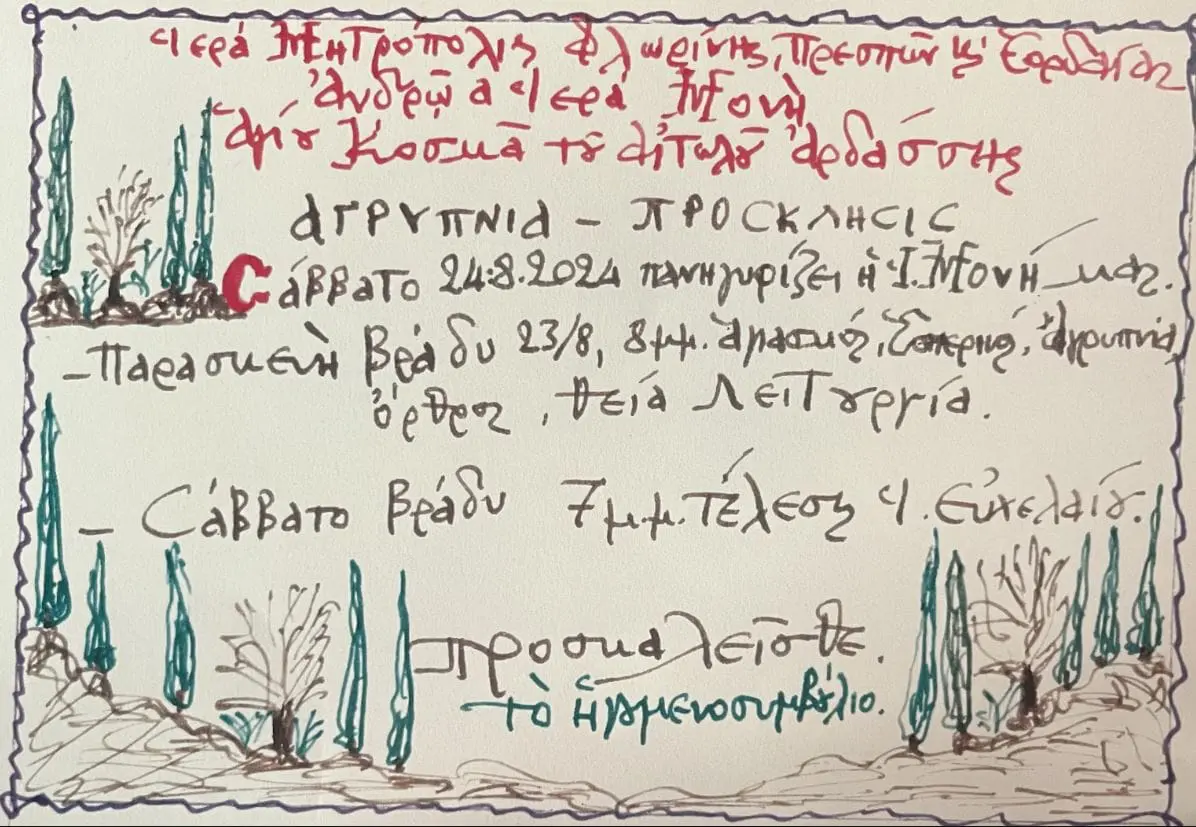 Ἱερά Μητρόπολις Φλωρίνης, Πρεσπῶν κ' Ἑορδαίας
Ἀνδρῴα Ἱερά Μονή
Ἁγίȣ Κοσμᾶ τȣ͂ Αἰτωλȣ͂ Ἀρδάσσης
ΑΓΡΥΠΝΙΑ - ΠΡΟСΚΛΗСΙС
Сάββατο 24.8.2024 πανηγυρίζει ἡ Ἱ. Μονή μας.
-Παρασκευὴ βράδυ 23/8, 8μμ. Ἁγιασμός, Ἑσπερινός, Ἀγρυπνία
ὄρθρος, θεία Λειτȣργία.
- Сάββατο βράδυ 7μ.μ. τέλεσις Ἱ. Εὐχελαίȣ.
προσκαλεῖσθε.
τὸ Ἡγȣμενοσυμβȣ́λιο.